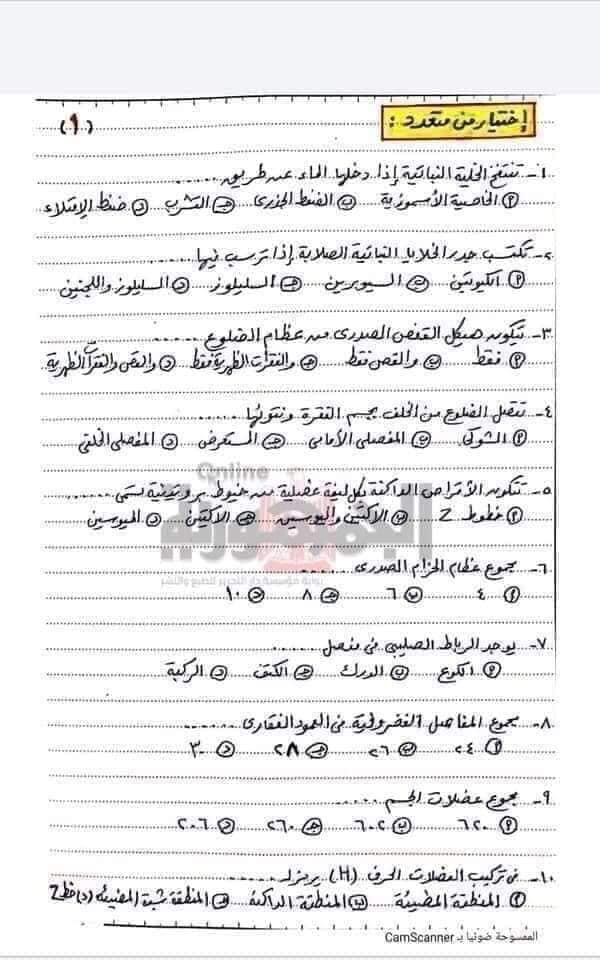 (١)
إختيار من متعدد :
١- تنتفخ الخلية النباتية إذا دخلها الماء عن طريق ......
أ الخاصية الأسموزية ب الضغط الجذرى جـ التشرب د ضغط الإمتلاء
٢- تكتسب جدر الخلايا النباتية الصلابة إذا ترسب فيها .....
أ الكيوتين ب السيوبرين جـ السليلوز د السليلوز واللجنين
٣- تيكون هيكل القفص الصدرى من عظام الضلوع ......
أ فقط ب والقص فقط جـ والفقرات الظهرية فقط د والقص والفقرات الظهرية
٤- تتصل الضلوع من الخلف بجسم الفقرة ونتوئها ......
أ الشوكى ب المفصلى الأمامى جـ المستعرض د المفصلى الخلفى
Online
الجمهورية
بوابة مؤسسة دار التحرير للطبع والنشر
٥- تتكون الأقراص الداكنة بكل ليفة عضلية من خيوط بروتينية تسمى ......
أ خطوط Z ب الاكتين والميوسين جـ الاكتين د الميوسين
٦- مجموع عظام الحزام الصدرى ......
أ ٤ ب ٦ جـ ٨ د ١٠
٧- يوجد الرباط الصليبى فى مفصل ......
أ الكوع ب الورك جـ الكتف د الركبة
٨- مجموع المفاصل الغضروفية فى العمود الفقارى ......
أ ٢٤ ب ٢٦ جـ ٢٨ د ٣٠
٩- مجموع عضلات الجسم .....
أ ٦٢٠ ب ٦٠٢ جـ ٢٦٠ د ٢٠٦
١٠- فى تركيب العضلات الحرف (H) يرمز لـ ......
أ المنطقة المضيئة ب المنطقة الداكنة جـ المنطقة شبة المضيئه (د) خط Z
الممسوحة ضوئيا بـ CamScanner